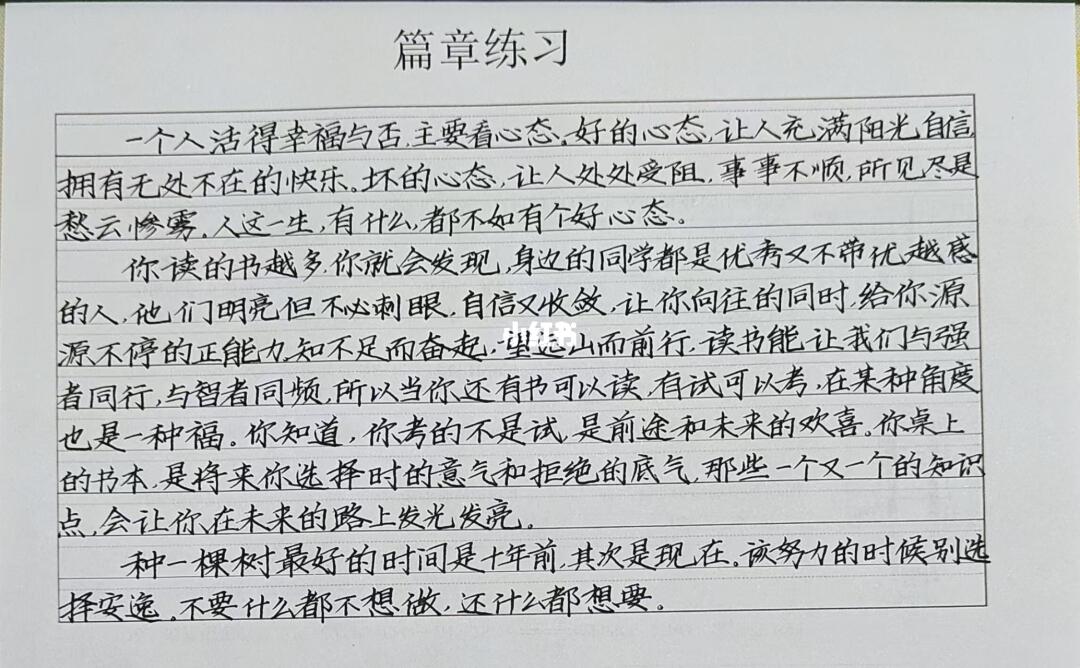 篇章练习
一个人活得幸福与否,主要看心态。好的心态,让人充满阳光自信,
拥有无处不在的快乐。坏的心态,让人处处受阻,事事不顺,所见尽是
愁云惨雾。人这一生,有什么,都不如有个好心态。
你读的书越多,你就会发现,身边的同学都是优秀又不带优越感
的人,他们明亮但不必刺眼,自信又收敛,让你向往的同时,给你源
小红书
源不停的正能力,知不足而奋起,望远山而前行,读书能让我们与强
者同行,与智者同频,所以当你还有书可以读,有试可以考,在某种角度
也是一种福。你知道,你考的不是试,是前途和未来的欢喜。你桌上
的书本,是将来你选择时的意气和拒绝的底气,那些一个又一个的知识
点,会让你在未来的路上发光发亮。
种一棵树最好的时间是十年前,其次是现在。该努力的时候别选
择安逸。不要什么都不想做,还什么都想要。